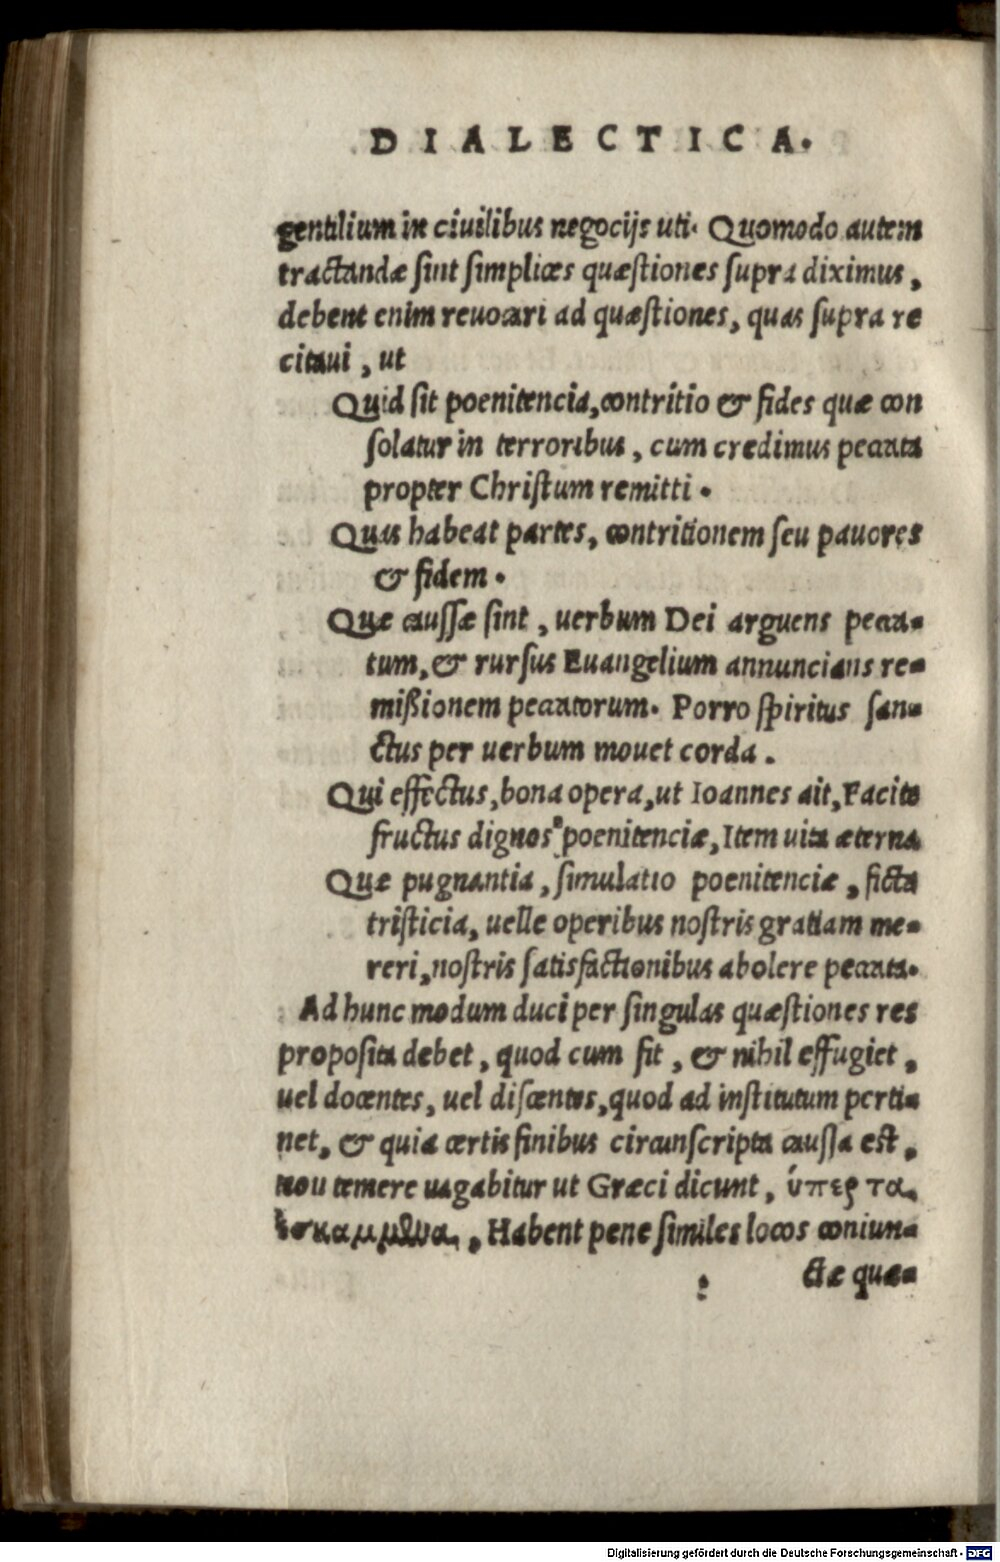 DIALECTICA.
gentilium in ciuilibus negocijs uti. Quomodo autem
tractandæ ſint ſimplices quæſtiones ſupra diximus,
debent enim reuocari ad quæſtiones, quas ſupra re
citaui, ut
Quid ſit poenitencia, contritio & fides quæ con
ſolatur in terroribus, cum credimus peccata
propter Chriſtum remitti.
Quas habeat partes, contritionem ſeu pauores
& fidem.
Quæ cauſſæ ſint, uerbum Dei arguens pecca-
tum, & rurſus Euangelium annuncians re-
mißionem peccatorum. Porro ſpiritus ſan-
ctus per uerbum mouet corda.
Qui effectus, bona opera, ut Ioannes ait, Facite
fructus dignos poenitenciæ, Item uita æterna
Quæ pugnantia, ſimulatio poenitenciæ, ficta
triſticia, uelle operibus noſtris gratiam me-
reri, noſtris ſatisfactionibus abolere peccata.
Ad hunc modum duci per ſingulas quæſtiones res
propoſita debet, quod cum fit, & nihil effugiet,
uel docentes, uel diſcentes, quod ad inſtitutum perti-
net, & quia certis finibus circunſcripta cauſſa eſt,
non temere uagabitur ut Græci dicunt, ὑπερ τα
ἐσκαμμένα, Habent pene ſimiles locos coniun-
ctæ quæ-
Digitalisierung gefördert durch die Deutsche Forschungsgemeinschaft - DFG